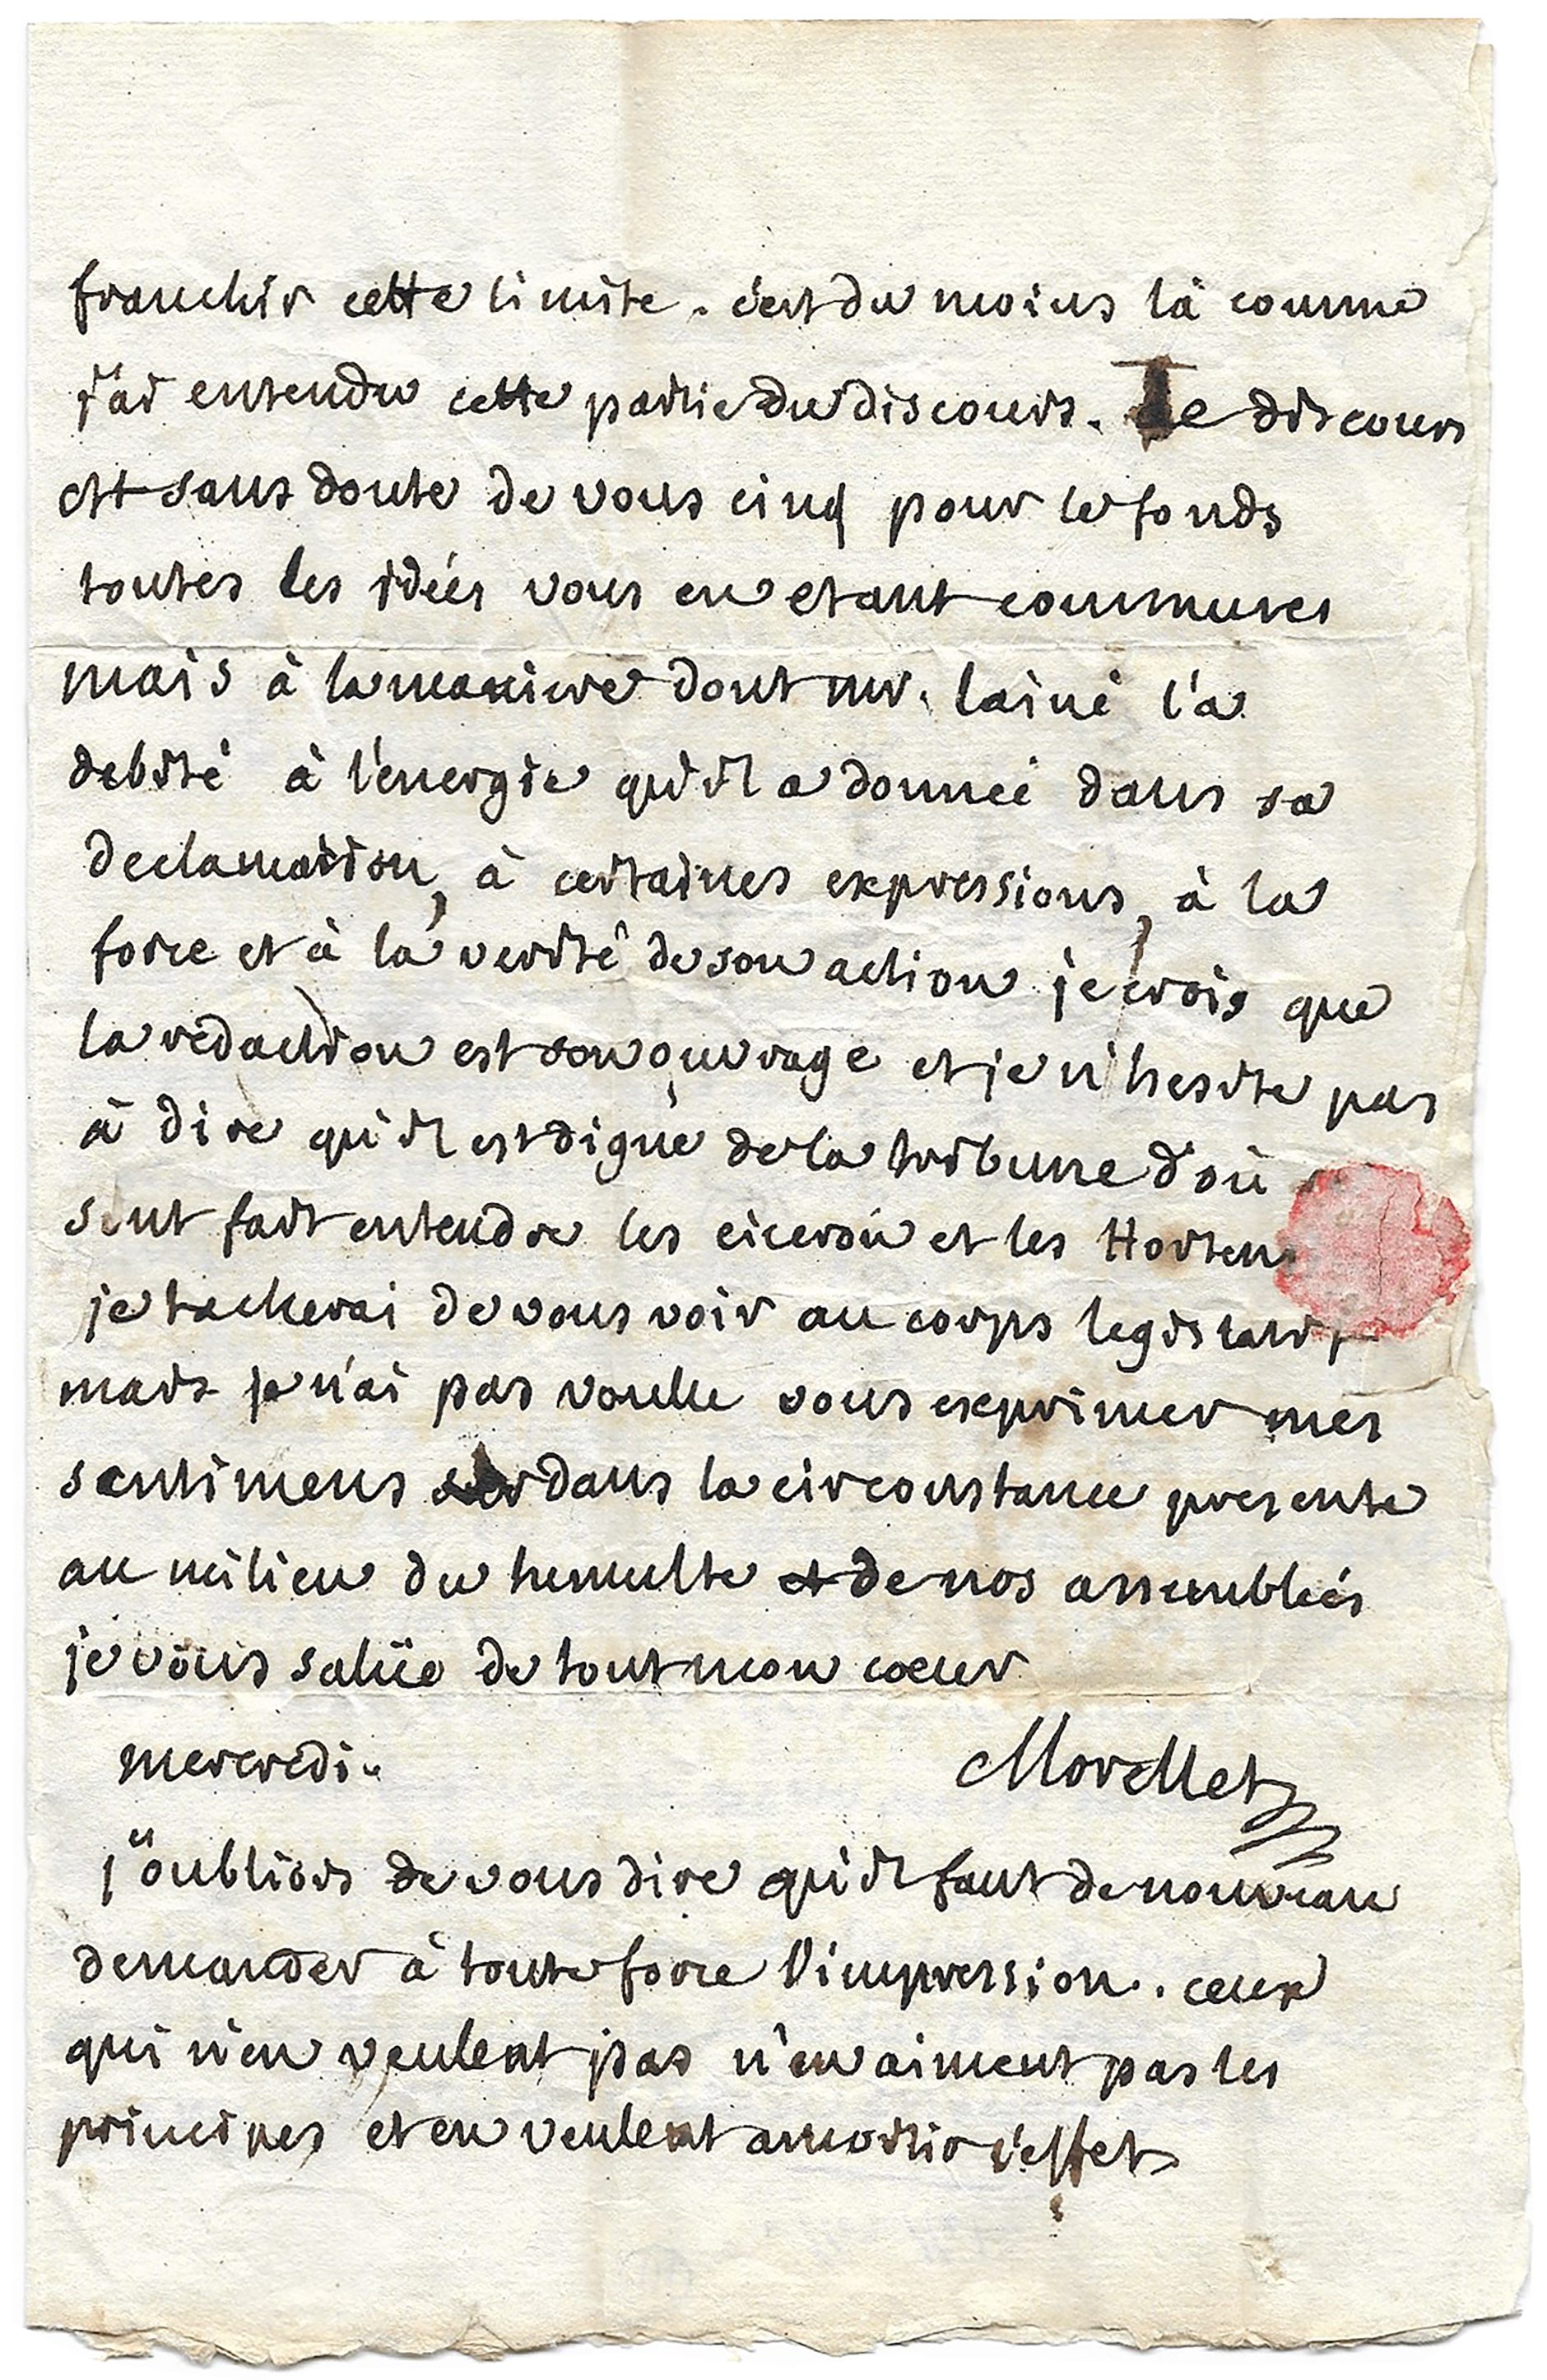 franchir cette limite. c'est du moins là comme
j'ai entendu cette partie du discours. Le discours
est sans doute de vous cinq pour le fonds
toutes les idées vous en etant communes
mais à la maniere dont mr. lainé l'a
debité à l'energie qu'il a donnée dans sa
declamation, à certaines expressions, à la
force et à la verité de son action je crois que
la redaction est son ouvrage et je n'hesite pas
à dire qu'il est digne de la tribune d'où
sont fait entendre les ciceron et les Horten
je tacherai de vous voir au corps legislatif
mais je n'ai pas voulu vous exprimer mes
sentimens dans la circonstance presente
au milieu du tumulte de nos assemblées
je vous salüe de tout mon coeur
mercredi.
Morellet
j'oubliois de vous dire qu'il faut de nouveau
demander à toute force l'impression. ceux
qui n'en veulent pas n'en aiment pas les
principes et en veulent amortir l'effet